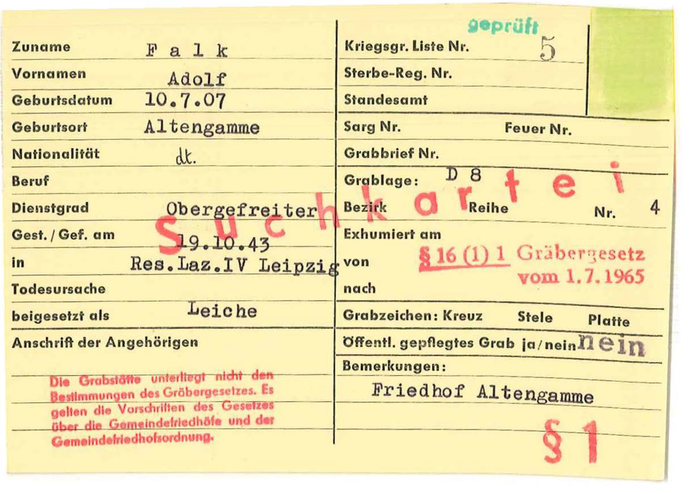 geprüft
Zuname Falk
Vornamen Adolf
Geburtsdatum 10.7.07
Geburtsort Altengamme
Nationalität dt.
Beruf
Dienstgrad Obergefreiter
Gest./Gef. am 19.10.43
in Res.Laz.IV Leipzig
Todesursache
beigesetzt als Leiche
Anschrift der Angehörigen
Die Grabstätte unterliegt nicht den
Bestimmungen des Gräbergesetzes. Es
gelten die Vorschriften des Gesetzes
über die Gemeindefriedhöfe und der
Gemeindefriedhofsordnung.
Suchkartei
Kriegsgr. Liste Nr. 5
Sterbe-Reg. Nr.
Standesamt
Sarg Nr. Feuer Nr.
Grabbrief Nr.
Grablage: D 8
Bezirk Reihe Nr. 4
Exhumiert am
von
nach
§ 16 (1) 1 Gräbergesetz
vom 1.7.1965
Grabzeichen: Kreuz Stele Platte
Öffentl. gepflegtes Grab ja/nein nein
Bemerkungen:
Friedhof Altengamme
§ 1